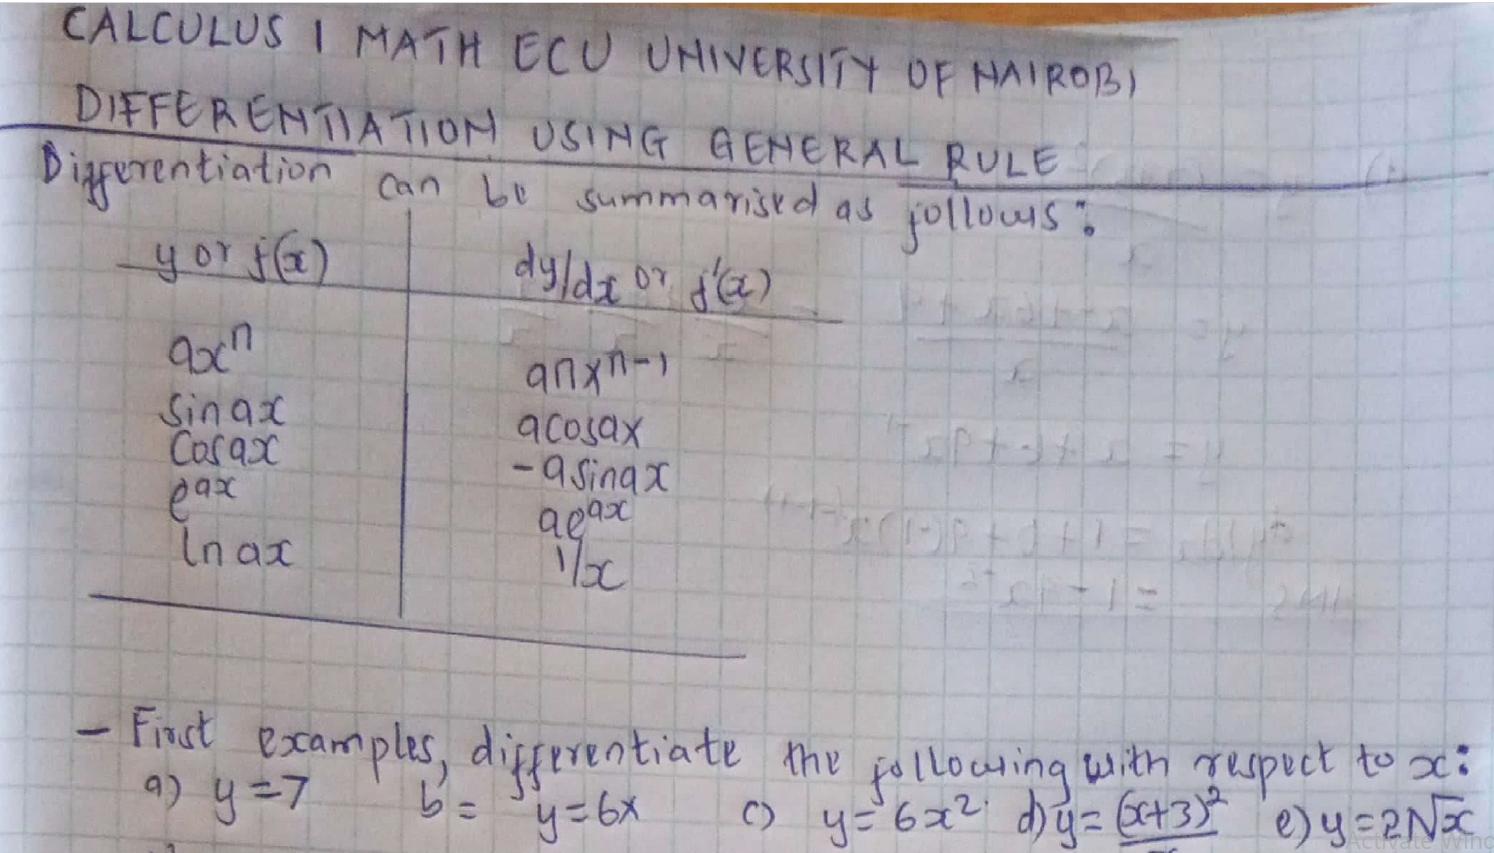 CALCULUS 1 MATH ECU UNIVERSITY OF NAIROBI
DIFFERENTIATION USING GENERAL RULE
Differentiation can be summarised as follows:
y or f(x) dy/dx or f'(x)
ax^n anx^n-1
sin ax acosax
Cos ax -asinax
e^ax ae^ax
ln ax 1/x
- First examples, differentiate the following with respect to x:
a) y=7 b= y=6x c) y=6x² d) y=(x+3)² e) y=2√x